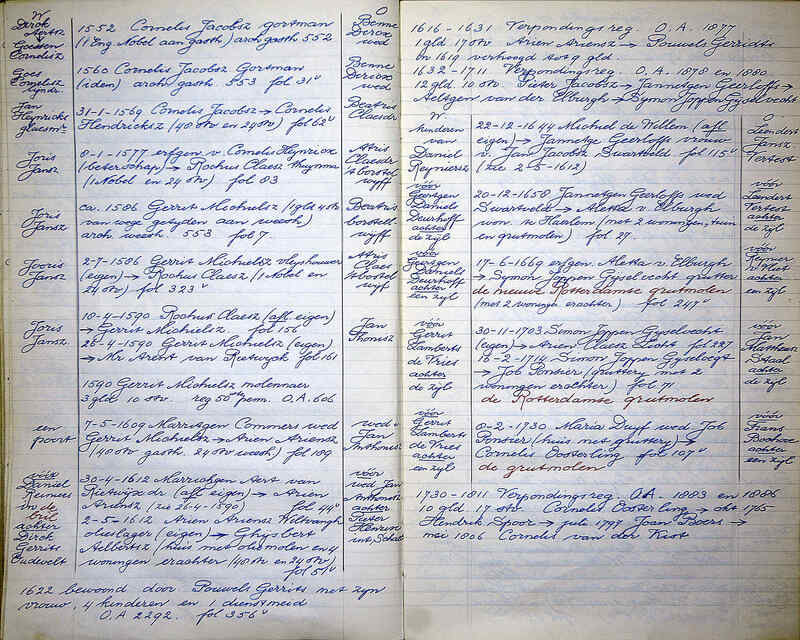 W
Dirck
Aertsz
Goessen
Cornelisz
1552 Cornelis Jacobsz gortman
(1 Eng. Nobel aan gasth) arch gasth 552
O
Benne
Dercx
wed
Goes
Cornelisz
1560 Cornelis Jacobsz Gortman
(iden) arch gasth. 553 fol 31v
Benne
Dercx
wed
Jan
Heynricks
glaesmr
31-1-1569 Cornelis Jacobsz → Cornelis
Hendricksz (40 stv en 24 stv) fol 62v
Beatris
Claesdr
Joris
Jansz
8-1-1577 erfgen v. Cornelis Heynricx
(beterschap) → Rochus Claesz
(1 Nobel en 24 stv) fol 83
Atris
Claesdr
wyff
Joris
Jansz
ca. 1586 Gerrit Michielsz (1 gld 4 stv
van wege getyden aan weesh)
arch. weesh 553 fol 7
Beatris
wyff
Jooris
Jansz
2-7-1586 Gerrit Michielsz
(eigen) → Rochus Claesz (1 Nobel en
24 stv) fol 323v
Atris
Claes
wyf
Joris
Jansz
10-4-1590 Rochus Claesz (afl eigen)
→ Gerrit Michielsz. fol 156v
26-4-1590 Gerrit Michielsz (eigen)
→ Mr Arent van Rietwyck fol 161
Jan
Thonisz
1590 Gerrit Michielsz molenaer
3 gld 10 stv. reg 50ste penn. O.A. 606
een
poort
7-5-1609 Marritgen Commers wed
Gerrit Michielsz → Arien Ariensz
(40 stv gasth. 24 stv weesh) fol 109
wed v
Jan
Anthonisz
vóór
Daniel
achter
Dirck
Gerrits
Oudwelt
30-4-1612 Marrichgen Aert van
Rietwijxdr (afl eigen) → Arien
Ariensz (zie 26-4-1590) fol 44v
2-5-1612 Arien Ariensz
olieslager (eigen) → Ghysbert
Aelbertsz (huis met oliemolen en 4
woningen erachter) (40 stv en 24 stv)
fol 51v
vóór
wed Jan
Anthonisz
achter
Pieter
1622 bewoond door Pouwels Gerrits met zyn
vrouw, 4 kinderen en 1 dienstmeid
O.A 2292. fol 356v
1616 - 1631 Verpondingsreg. O.A. 1877
1 gld 17 stv Arien Ariensz → Pouwels Gerridts
en 1619 verhoogd tot 9 gld.
1632 - 1711 Verpondingsreg. O.A. 1878 en 1880
12 gld. 10 stv. Pieter Jacobsz → Jannetgen Geerloffs →
Aeltgen van der Elburgh → Symon Joppen Gyselvecht
W
kinderen
van
Daniel
Reyniersz
22-12-1644 Michiel de Willem (afl
eigen) → Jannetge Geerloffs vrouw
v. Jan Jacobsz Swartveld fol 115v
(zie 2-5-1612)
O
Leendert
Jansz
Tertest
vóór
Geertgen
Daniels
Deurhoff
achter
de zyl
20-12-1658 Jannetgen Geerloffs wed
Swartvelt → Aletta v. Elburgh
won. te Haarlem (met 2 woningen, tuin
en grutmolen) fol 27.
vóór
Leendert
Tertest
achter
de zyl
vóór
Geertgen
Daniels
Deurhoff
achter
een zyl
17-6-1669 erfgen. Aletta v. Elburgh
→ Symon Joppen Gyselvecht grutter
de nieuwe Rotterdamse grutmolen
(met 2 woningen erachter) fol 247v
vóór
Reynier
v Vliet
achter
een zyl
vóór
Gerrit
Lamberts
de Vries
achter
de zijl
30-11-1703 Simon Joppen Gyselvecht
(eigen) → Arien Claesz Lacht fol 227
16-2-1714 Simon Joppen Gyselvegt
→ Job Pensier (gruttery met 2
woningen erachter) fol 71
de Rotterdamse grutmolen
vóór
Jan
Mattheus
Staal
achter
de zijl
vóór
Gerrit
Lamberts
de Vries
achter
een zyl
8-2-1730 Maria Duyf wed Job
Pensier (huis met gruttery) →
Cornelis Oosterling fol 107v
de grutmolen
vóór
Frans
achter
een zyl
1730 - 1811 Verpondingsreg. O.A. 1883 en 1886
10 gld. 17 stv. Cornelis Oosterling → okt 1765
Hendrik Spoor → july 1797 Joan Boers →
mei 1806 Cornelis van der Kist